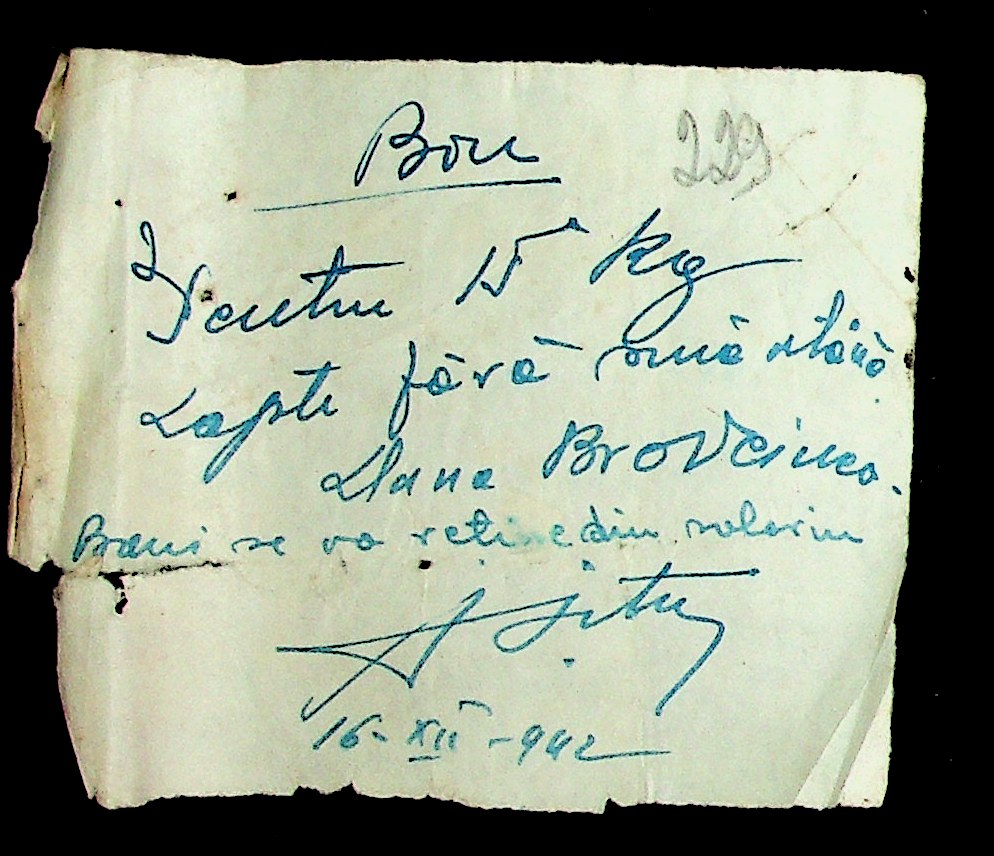 Bon
229
Pentru 15 kg
Lapte fără smântână
Duna Brovcinco.
Banii se va reține din salariu
16-XII-942